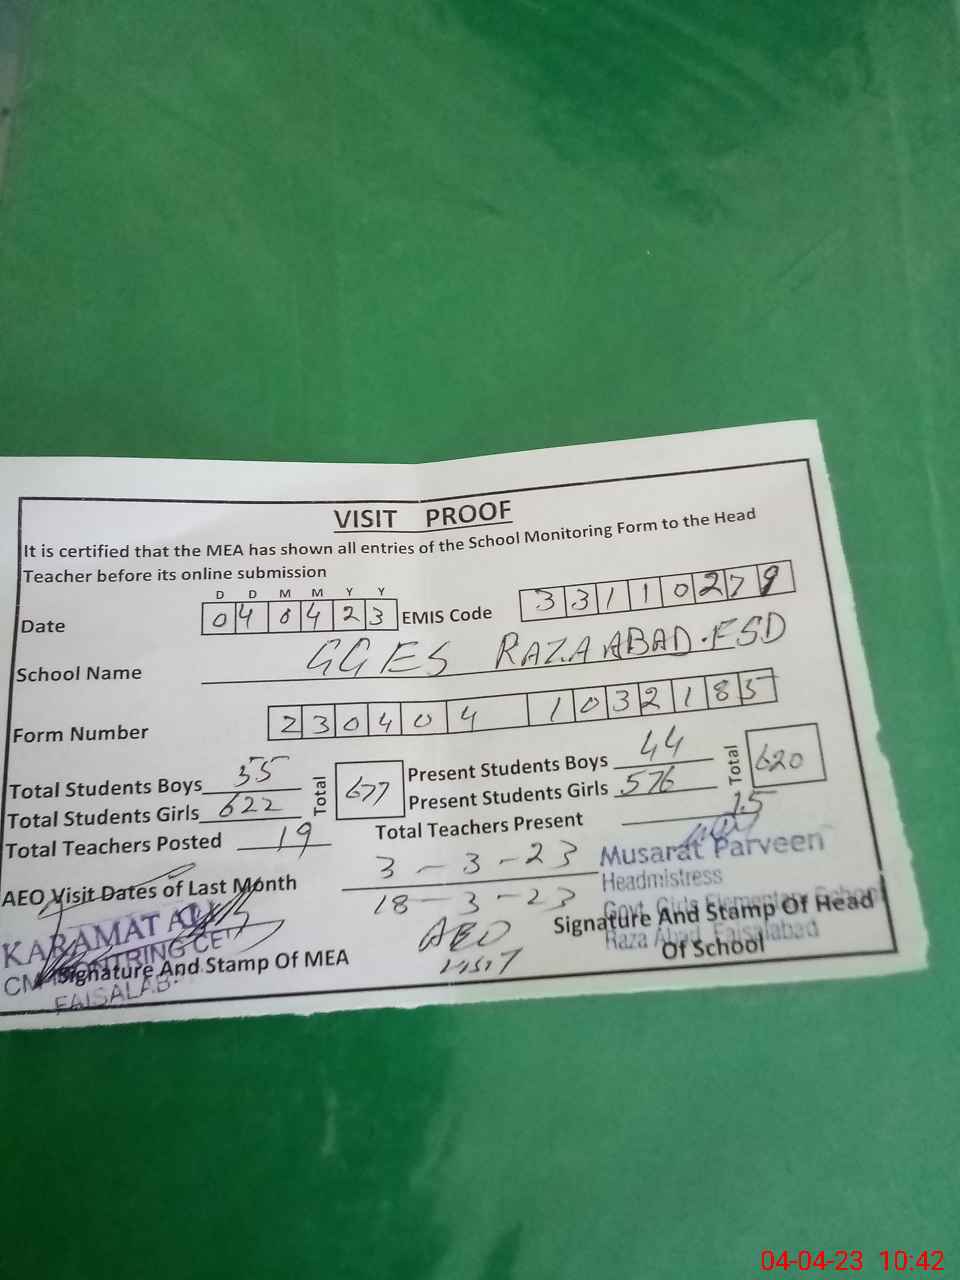 VISIT PROOF
It is certified that the MEA has shown all entries of the School Monitoring Form to the Head
Teacher before its online submission
D D M M Y Y
Date 04 04 23 EMIS Code 33110279
School Name GGES RAZAABAD.FSD
Form Number 230404 1032185
Total Students Boys 55 Total 677 Present Students Boys 44 Total 620
Total Students Girls 622 Present Students Girls 576
Total Teachers Posted 19 Total Teachers Present 15
AEO Visit Dates of Last Month 3-3-23
18-3-23
AEO
VISIT
Musarat Parveen
Headmistress
Govt. Girls Elementary School
Raza Abad, Faisalabad
Signature And Stamp Of Head
Of School
KARAMAT ALI
FAISALAB
Signature And Stamp Of MEA
04-04-23 10:42